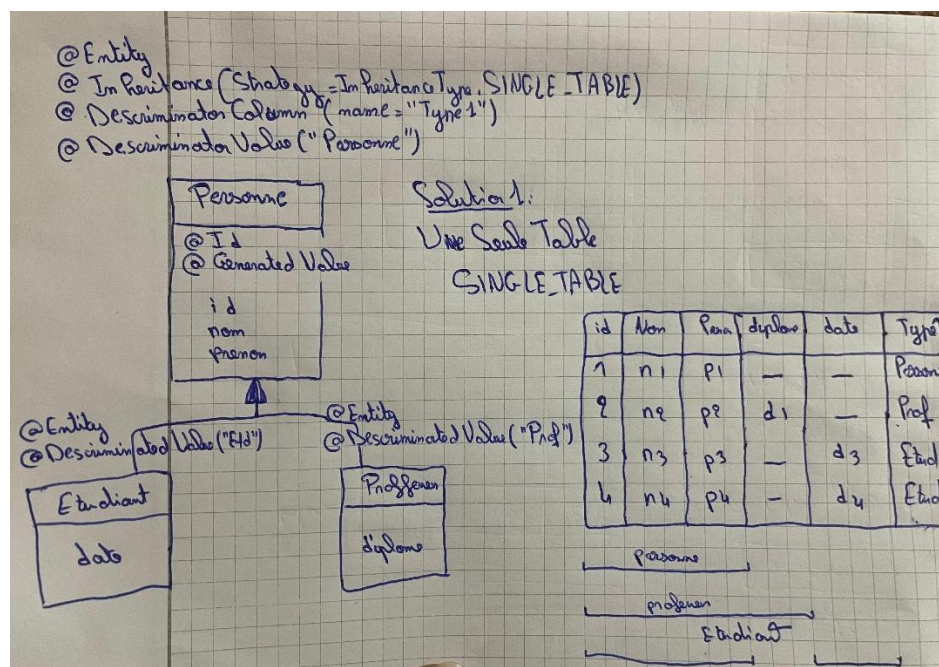 @Entity
@Inheritance(Strategy=InheritanceType.SINGLE_TABLE)
@DescriminatorColumn (name="Type1")
@DescriminatorValue("Personne")
Personne
@Id
@Generated Value
id
nom
prenom
Solution 1:
Une Seule Table
SINGLE_TABLE
id Nom Pren diplome date Type
1 n1 p1 — — Person
2 n2 p2 d1 — Prof
3 n3 p3 — d3 Etud
4 n4 p4 - d4 Etud
personne
professeur
Etudiant
@Entity
@Descriminated Value("Etd")
Etudiant
date
@Entity
@Descriminated Value("Prof")
Proffeseur
diplome